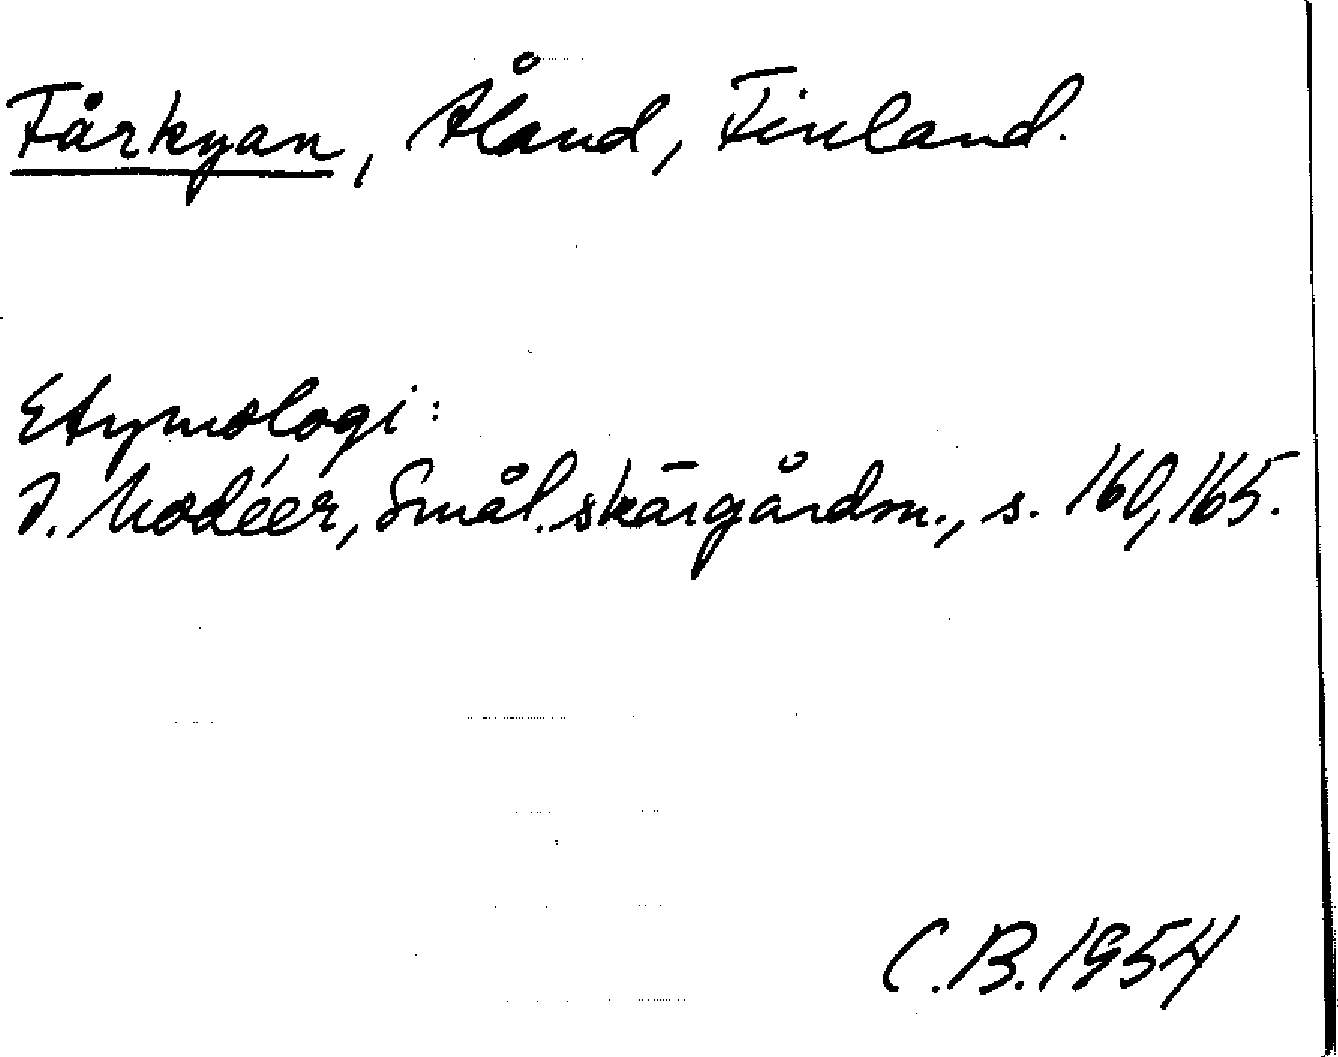 Fårkyan, Åland, Finland.
Etymologi:
I. Modéer, Smål. skärgårdsn., s. 160, 165.
C.B. 1954